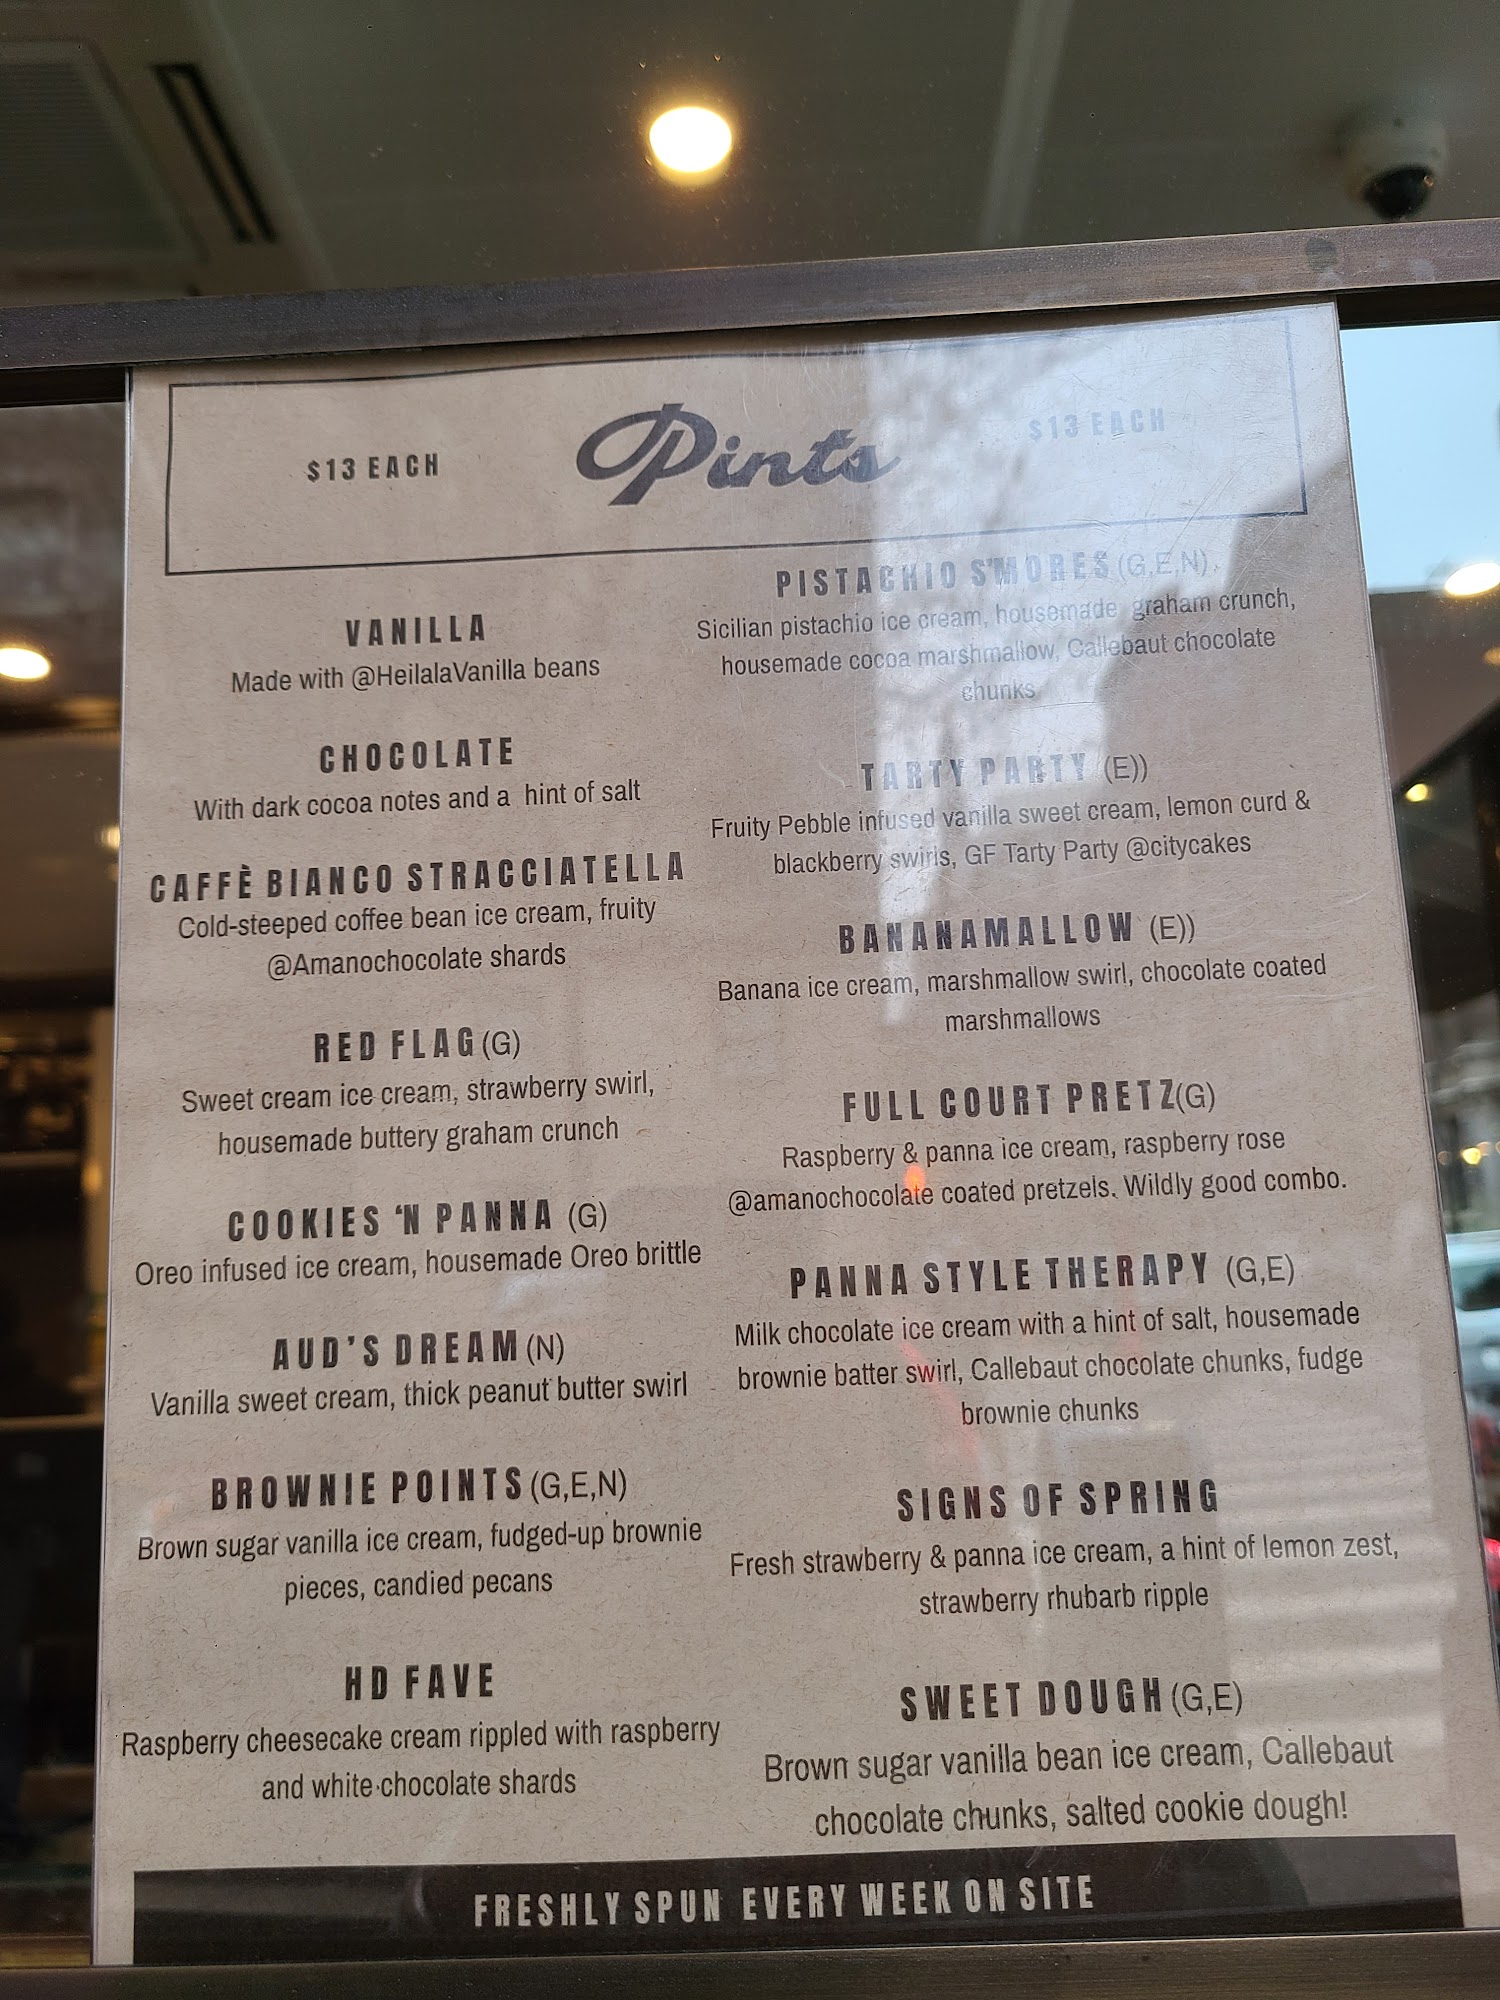 $13 EACH
Pints
$13 EACH
VANILLA
Made with @HeilalaVanilla beans
CHOCOLATE
With dark cocoa notes and a hint of salt
CAFFÈ BIANCO STRACCIATELLA
Cold-steeped coffee bean ice cream, fruity
@Amanochocolate shards
RED FLAG (G)
Sweet cream ice cream, strawberry swirl,
housemade buttery graham crunch
COOKIES ‘N PANNA (G)
Oreo infused ice cream, housemade Oreo brittle
AUD’S DREAM (N)
Vanilla sweet cream, thick peanut butter swirl
BROWNIE POINTS (G,E,N)
Brown sugar vanilla ice cream, fudged-up brownie
pieces, candied pecans
HD FAVE
Raspberry cheesecake cream rippled with raspberry
and white chocolate shards
PISTACHIO S'MORES (G,E,N)
Sicilian pistachio ice cream, housemade graham crunch,
housemade cocoa marshmallow, Callebaut chocolate
chunks
TARTY PARTY (E))
Fruity Pebble infused vanilla sweet cream, lemon curd &
blackberry swirls, GF Tarty Party @citycakes
BANANAMALLOW (E))
Banana ice cream, marshmallow swirl, chocolate coated
marshmallows
FULL COURT PRETZ(G)
Raspberry & panna ice cream, raspberry rose
@amanochocolate coated pretzels. Wildly good combo.
PANNA STYLE THERAPY (G,E)
Milk chocolate ice cream with a hint of salt, housemade
brownie batter swirl, Callebaut chocolate chunks, fudge
brownie chunks
SIGNS OF SPRING
Fresh strawberry & panna ice cream, a hint of lemon zest,
strawberry rhubarb ripple
SWEET DOUGH (G,E)
Brown sugar vanilla bean ice cream, Callebaut
chocolate chunks, salted cookie dough!
FRESHLY SPUN EVERY WEEK ON SITE